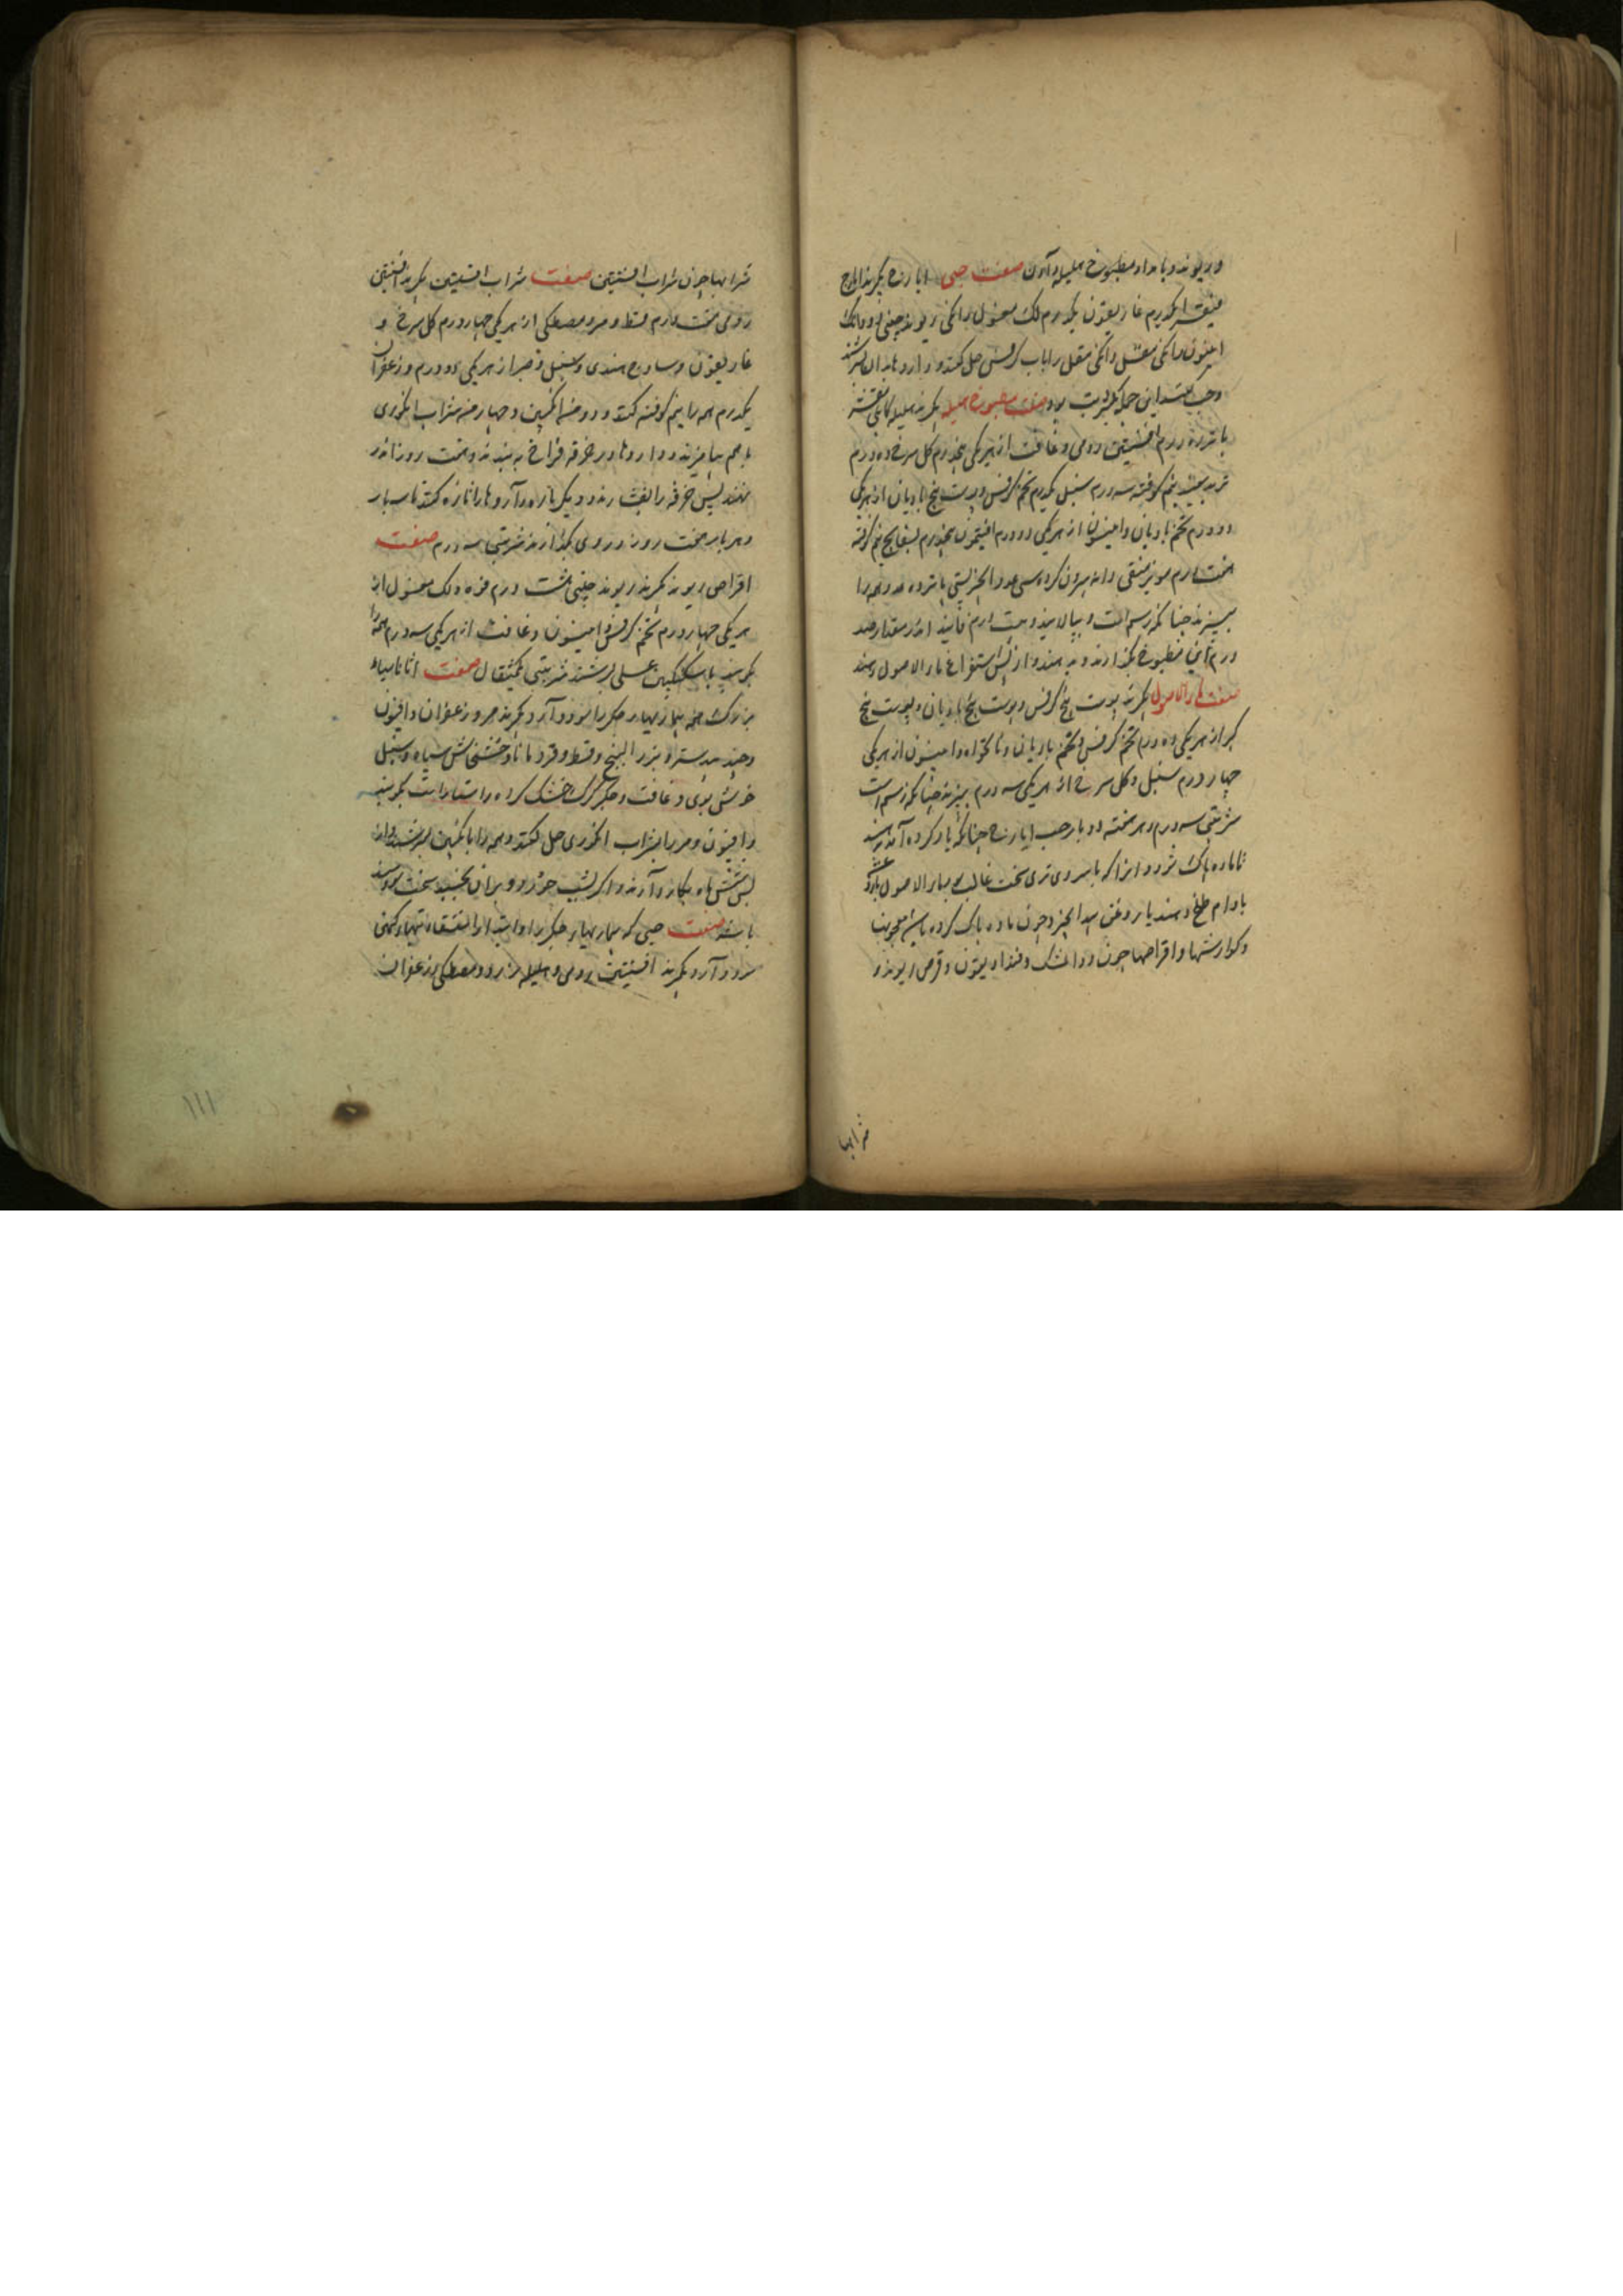 و ریوند و بامداد مطبوخ هلیله دادن صفت حبی ایارج بگیرند ایارج
فیقرا یکدرم غاریقون یکدرم لک مغسول دانکی ریوند چینی دو دانک
انیسون دانکی مقل دانکی مقل را باب کرفس حل کنند و داروها بدان بسرشند
و حب کنند این جمله یک شربت بود صفت مطبوخ هلیله بگیرند هلیله کابلی
پانزده درم افسنتین رومی و غافت از هر یکی پنجدرم کل سرخ ده درم
تربد سپید نیم کوفته سه درم سنبل یکدرم تخم کرفس و پوست بیخ بادیان از هر یکی
دو درم تخم بادیان و انیسون از هر یکی دو درم افتیمون پنجدرم بسفایج نیم کوفته
هفت درم مویز منقی دانه بیرون کرده سی عدد انجیر بستی پانزده عدد همه را
بپزند چنانکه رسم است و بپالایند و هشت درم فانید اندر مقدار صد
درم ازین مطبوخ بکدازند و بدهند و از پس استفراغ ماء الاصول دهند
صفت ماء الاصول بگیرند پوست بیخ کرفس و پوست بیخ بادیان و پوست بیخ
کبر از هر یکی ده درم تخم کرفس و تخم بادیان و نانخواه و انیسون از هر یکی
چهار درم سنبل و کل سرخ از هر یکی سه درم بپزند چنانکه رسم است
شربتی سه درم و هر هفته دو بار حب ایارج چنانکه یاد کرده آمد بدهند
تا ماده پاک شود و انرا که با سردی تری سخت غالب بود ماء الاصول با روغن
بادام طلخ دهند یا روغن بید انجیر و چون ماده پاک کرده باشن معجونها
و کوارشها و اقراصها چون دواء المسک و فنداریقون و قرص ریوند و
شرابها
شرابها چون شراب افسنتین صفت شراب افسنتین بگیرند افسنتین
رومی هفت درم قسط و مر و مصطکی از هر یکی چهار درم کل سرخ و
غاریقون و ساذج هندی و سنبل و صبر از هر یکی دو درم و زعفران
یکدرم همه را نیم کوفته کنند و دو من انکبین و چهار من شراب انکوری
با هم بیامیزند و داروها در خرقه فراخ به بندند و هفت روز اندر
نهند پس خرقه را بفشارند و دیکر باره داروها را تازه کنند تا سه بار
و هر بار هفت روز در وی بکذارند شربتی سه درم صفت
اقراص ریوند بگیرند ریوند چینی هشت درم فوه و لک مغسول از
هر یکی چهار درم تخم کرفس و انیسون و غافت از هر یکی سه درم همه را
بکوبند با سکنکبین عسلی بسرشند شربتی یکمثقال صفت اثاناسیاء
بزرک همه بیماریهاء جکر را سود دارد بگیرند مر و زعفران و افیون
و جندبیدستر و بزر البنج و قسط و قردمانا و خشخاش سیاه و سنبل
خوش بوی و غافت و جکر کرک خشک کرده راستاراست بکوبند
و افیون و مر را بشراب انکوری حل کنند و همه را با انکبین بسرشند و از
پس شش ماه بکار دارند و اکر بشب خورد و بران بخسپد سخت سودمند
باشد صفت حبی که بیماریهاء جکر را و ابتداء استسقا و تبهاء کهن
سود دارد بگیرند افسنتین رومی و هلیله زرد و مصطکی و زعفران
۱۱۱